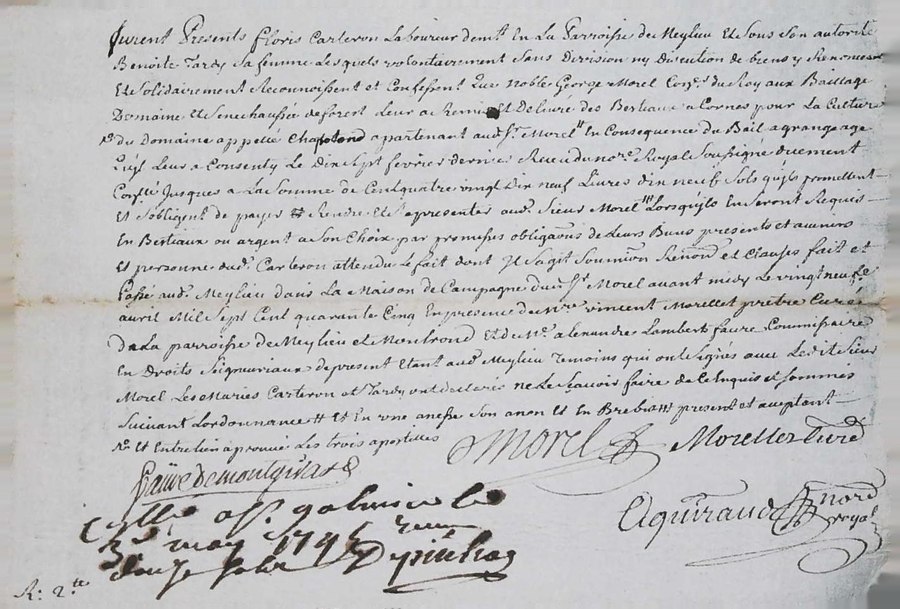 furent Presents Floris Carteron Laboureur demt. En La Parroisse de Meylieu Et Sous Son autorité
Benoite Tardy Sa femme Lesquels volontairement Sans Division ny Discution de biens y Renonceant
Et Solidairement Reconnoissent et Confessent Que noble George Morel Conr. du Roy aux Baillage
Domaine et Senechaussée de forest Leur a Remis Et Delivré des Bestiaux a Cornes pour La Culture
du Domaine appellé Chaptond apartenant aud. Sr. Morel En Consequence du Bail a grangeage
quil Leur a Consenty Le Dix Sept fevrier dernier Receu du nore. Royal Soussigné duement
Jusques a La Somme de Cent quatre vingt Dix neuf Livres dix neuf Sols quils promettent
Et Sobligent de payer Rendre Et Representer aud. Sieur Morel Lorsquils En Seront Requis
En Bestiaux ou argent a Son Choix par promesses obligaons de Leurs Biens presents et avenir
Et personne dud. Carteron attendu Le fait dont Il Sagit Soumion Renond. et Clauses fait et
Passé aud. Meylieu Dans La Maison de Campagne dud. Sr. Morel avant midy Le vingt neuf
avril Mil Sept Cent quarante Cinq En presence de vincent Morellet prêtre Curé
De La parroisse de Meylieu et Montrond Et de Me. alexandre Lambert faure Commissaire
En Droits Seigneuriaux de present Etant aud. Meylieu Temoins qui ont Signés avec Ledit Sieur
Morel Les Mariés Carteron et Tardy ont declarés ne Le Sçavoir faire de Ce Enquis et Sommés
Suivant Lordonnance # Et En une anesse Son anon Et En Brebis present et aceptant
Et Entretien aprouvé Les trois apostilles
Morel Morellet Curé
faure de montgirard
Aguiraud nore royal
Collé a St. galmier le
3e. may 1745
douze sols
R: 2 tt